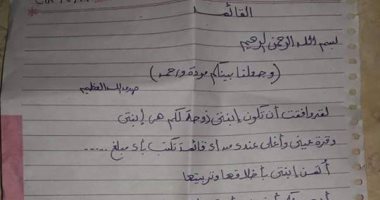 القائمة
بسم الله الرحمن الرحيم
(وجعلنا بينكم مودة ورحمة)
صدق الله العظيم
لقد وافقت أن تكون إبنتى زوجة لكم هى إبنتى
وقرة عينى وأغلى عندى من أى قائمة تكتب بأى مبلغ .....
أئتمن إبنتى بأخلاقها وتربيتها